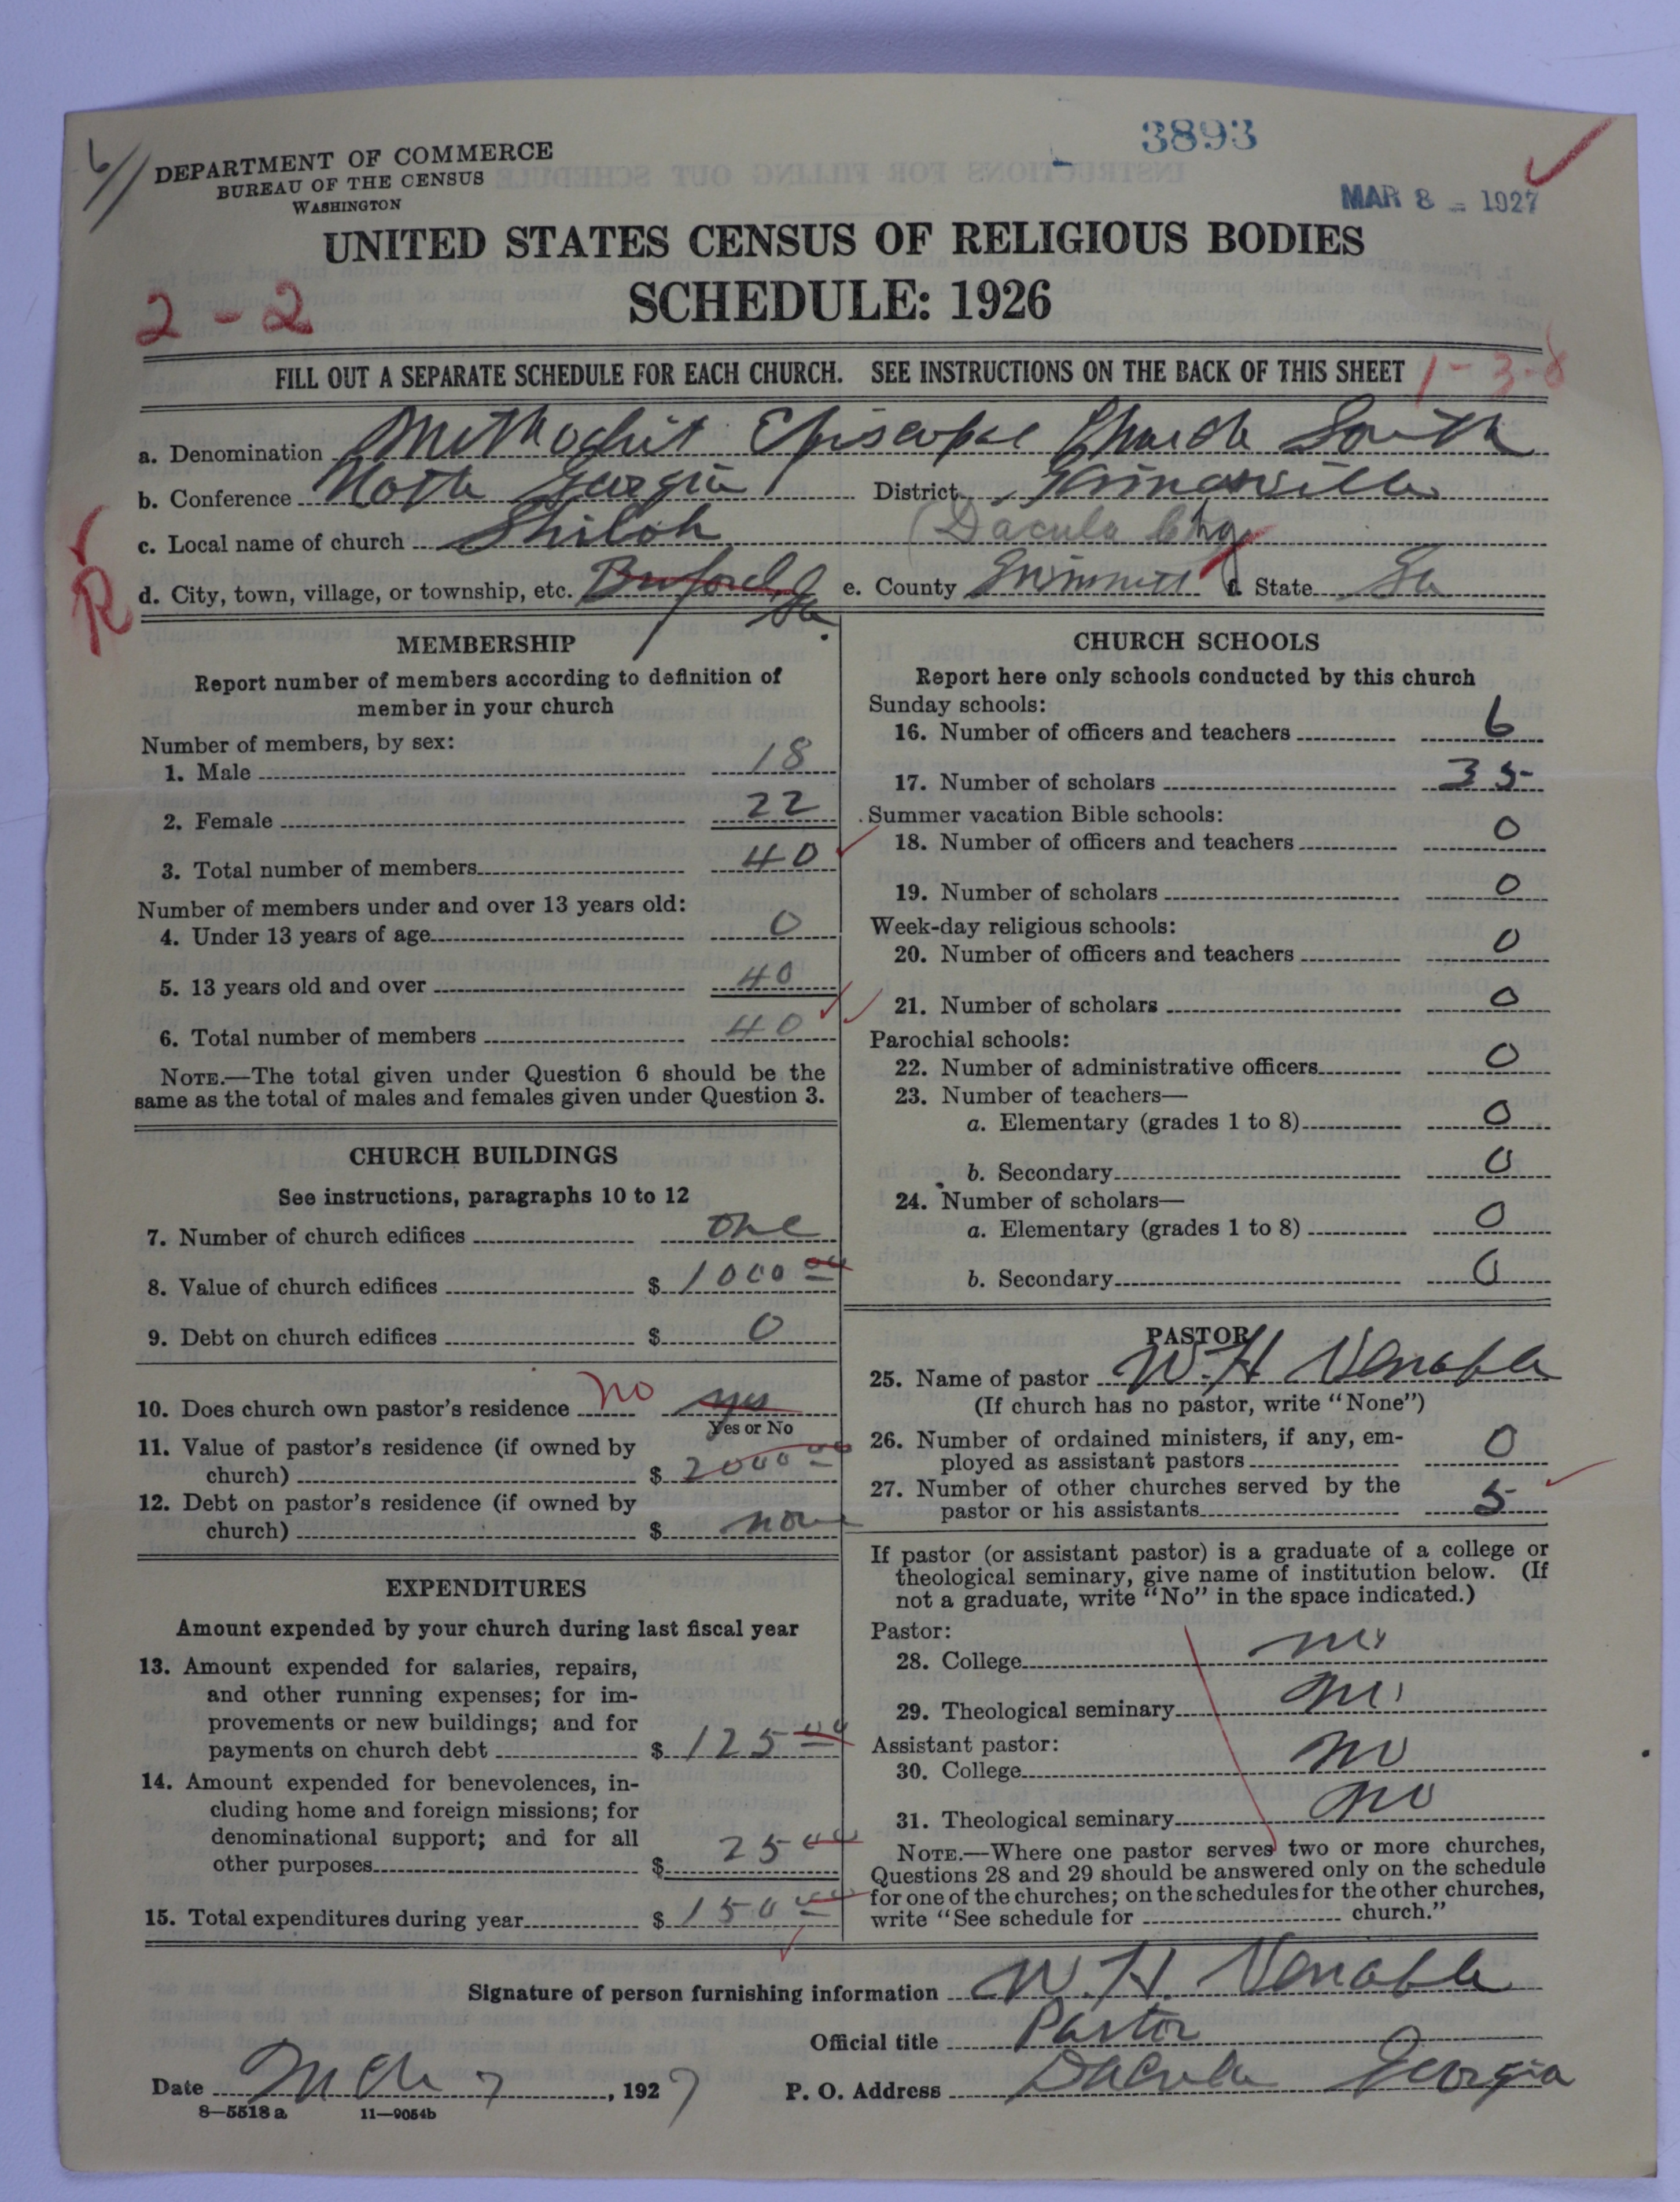 3893
DEPARTMENT OF COMMERCE
BUREAU OF THE CENSUS
WASHINGTON
MAR 8 - 1927
UNITED STATES CENSUS OF RELIGIOUS BODIES
SCHEDULE: 1926
2-2
FILL OUT A SEPARATE SCHEDULE FOR EACH CHURCH. SEE INSTRUCTIONS ON THE BACK OF THIS SHEET
1-3-8
a. Denomination Methodist Episcopal Church South
b. Conference North Georgia District
(Dacula Chg
c. Local name of church Shiloh
R
d. City, town, village, or township, etc. Buford, Ga. e. County Gwinnett f. State Ga
MEMBERSHIP
Report number of members according to definition of
member in your church
Number of members, by sex:
1. Male 18
2. Female 22
3. Total number of members 40
Number of members under and over 13 years old:
4. Under 13 years of age 0
5. 13 years old and over 40
6. Total number of members 40
NOTE.—The total given under Question 6 should be the
same as the total of males and females given under Question 3.
CHURCH BUILDINGS
See instructions, paragraphs 10 to 12
7. Number of church edifices one
8. Value of church edifices $ 1000 00
9. Debt on church edifices $ 0
10. Does church own pastor's residence no yes
Yes or No
11. Value of pastor's residence (if owned by
church) $ 2000 00
12. Debt on pastor's residence (if owned by
church) $ none
EXPENDITURES
Amount expended by your church during last fiscal year
13. Amount expended for salaries, repairs,
and other running expenses; for im-
provements or new buildings; and for
payments on church debt $ 125 00
14. Amount expended for benevolences, in-
cluding home and foreign missions; for
denominational support; and for all
other purposes $ 25 00
15. Total expenditures during year $ 150 00
CHURCH SCHOOLS
Report here only schools conducted by this church
Sunday schools:
16. Number of officers and teachers 6
17. Number of scholars 35
Summer vacation Bible schools:
18. Number of officers and teachers 0
19. Number of scholars 0
Week-day religious schools:
20. Number of officers and teachers 0
21. Number of scholars 0
Parochial schools:
22. Number of administrative officers 0
23. Number of teachers—
a. Elementary (grades 1 to 8) 0
b. Secondary 0
24. Number of scholars—
a. Elementary (grades 1 to 8) 0
b. Secondary 0
PASTOR
25. Name of pastor W. H Venable
(If church has no pastor, write "None")
26. Number of ordained ministers, if any, em-
ployed as assistant pastors 0
27. Number of other churches served by the
pastor or his assistants 5
If pastor (or assistant pastor) is a graduate of a college or
theological seminary, give name of institution below. (If
not a graduate, write "No" in the space indicated.)
Pastor:
28. College no
29. Theological seminary no
Assistant pastor:
30. College no
31. Theological seminary no
NOTE.—Where one pastor serves two or more churches,
Questions 28 and 29 should be answered only on the schedule
for one of the churches; on the schedules for the other churches,
write "See schedule for church."
Signature of person furnishing information W. H. Venable
Official title Pastor
Date Mch 7, 1927 P. O. Address Dacula Georgia
8—5518 a 11—9054b